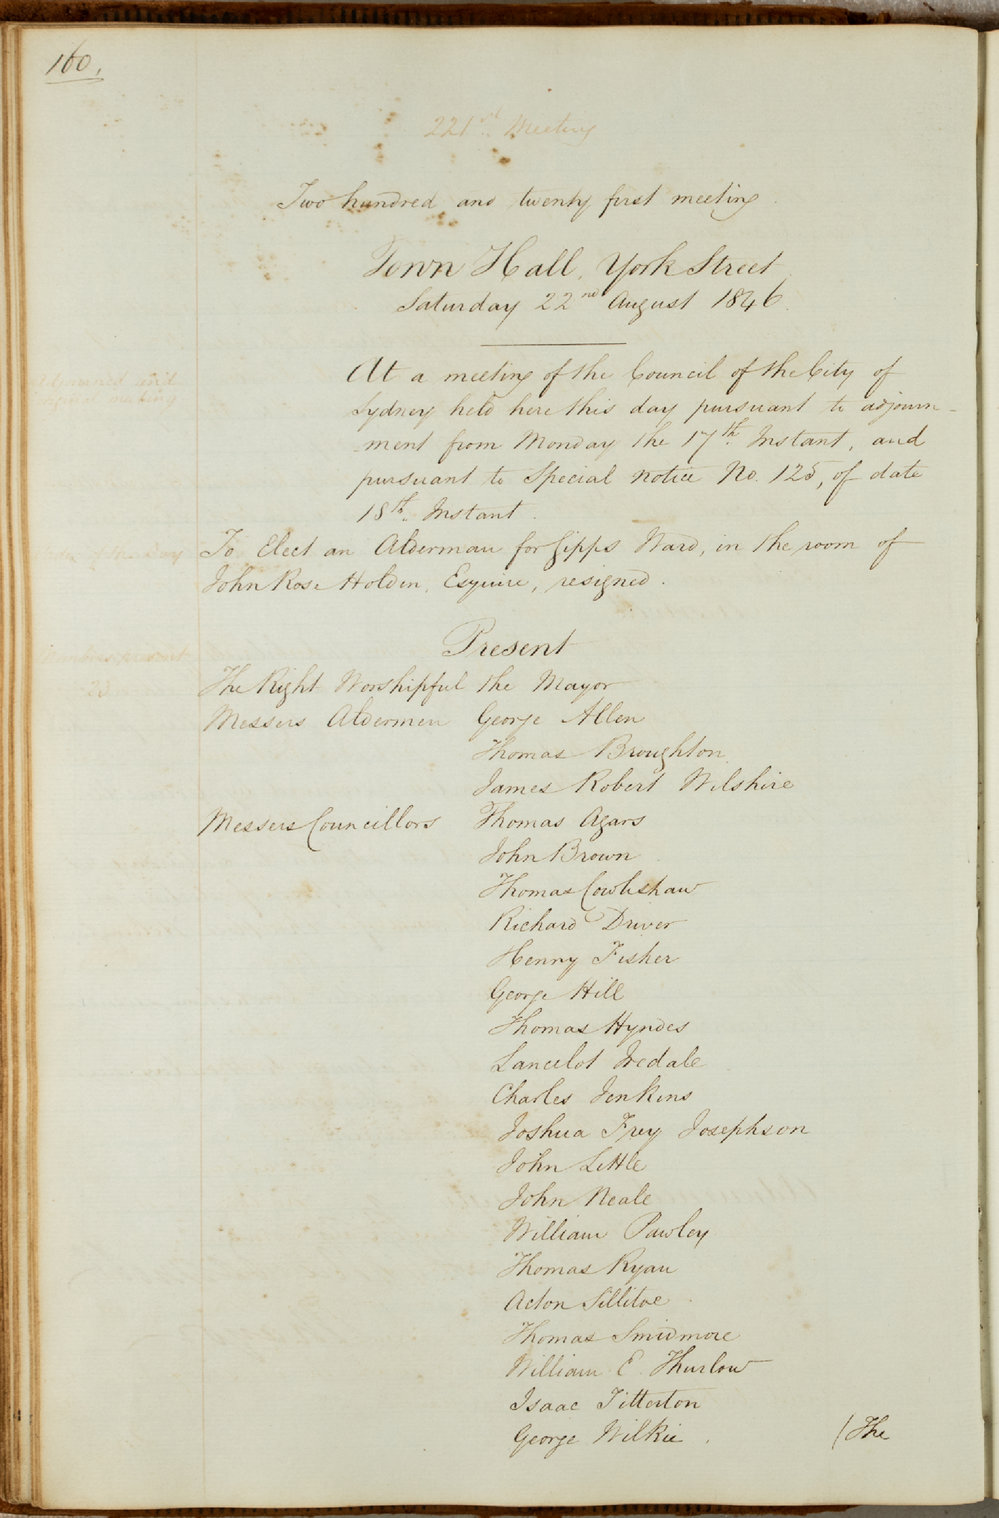 160.
221st Meeting
Two hundred and twenty first meeting
Town Hall, York Street
Saturday 22nd August 1846.
At a meeting of the Council of the City of
Sydney held here this day pursuant to adjourn-
ment from Monday the 17th Instant, and
pursuant to Special notice No. 125, of date
18th Instant.
To Elect an Alderman for Gipps Ward, in the room of
John Rose Holden, Esquire, resigned.
Present
Members present
23
The Right Worshipful the Mayor
Messers Aldermen George Allen
Thomas Broughton
James Robert Wilshire
Messers Councillors Thomas Agars
John Brown
Thomas Cowlishaw
Richard Driver
Henry Fisher
George Hill
Thomas Hyndes
Lancelot Iredale
Charles Jenkins
Joshua Frey Josephson
John Little
John Neale
William Pawley
Thomas Ryan
Acton Sillitoe
Thomas Smidmore
William E. Thurlow
Isaac Titterton
George Wilkie.
(The